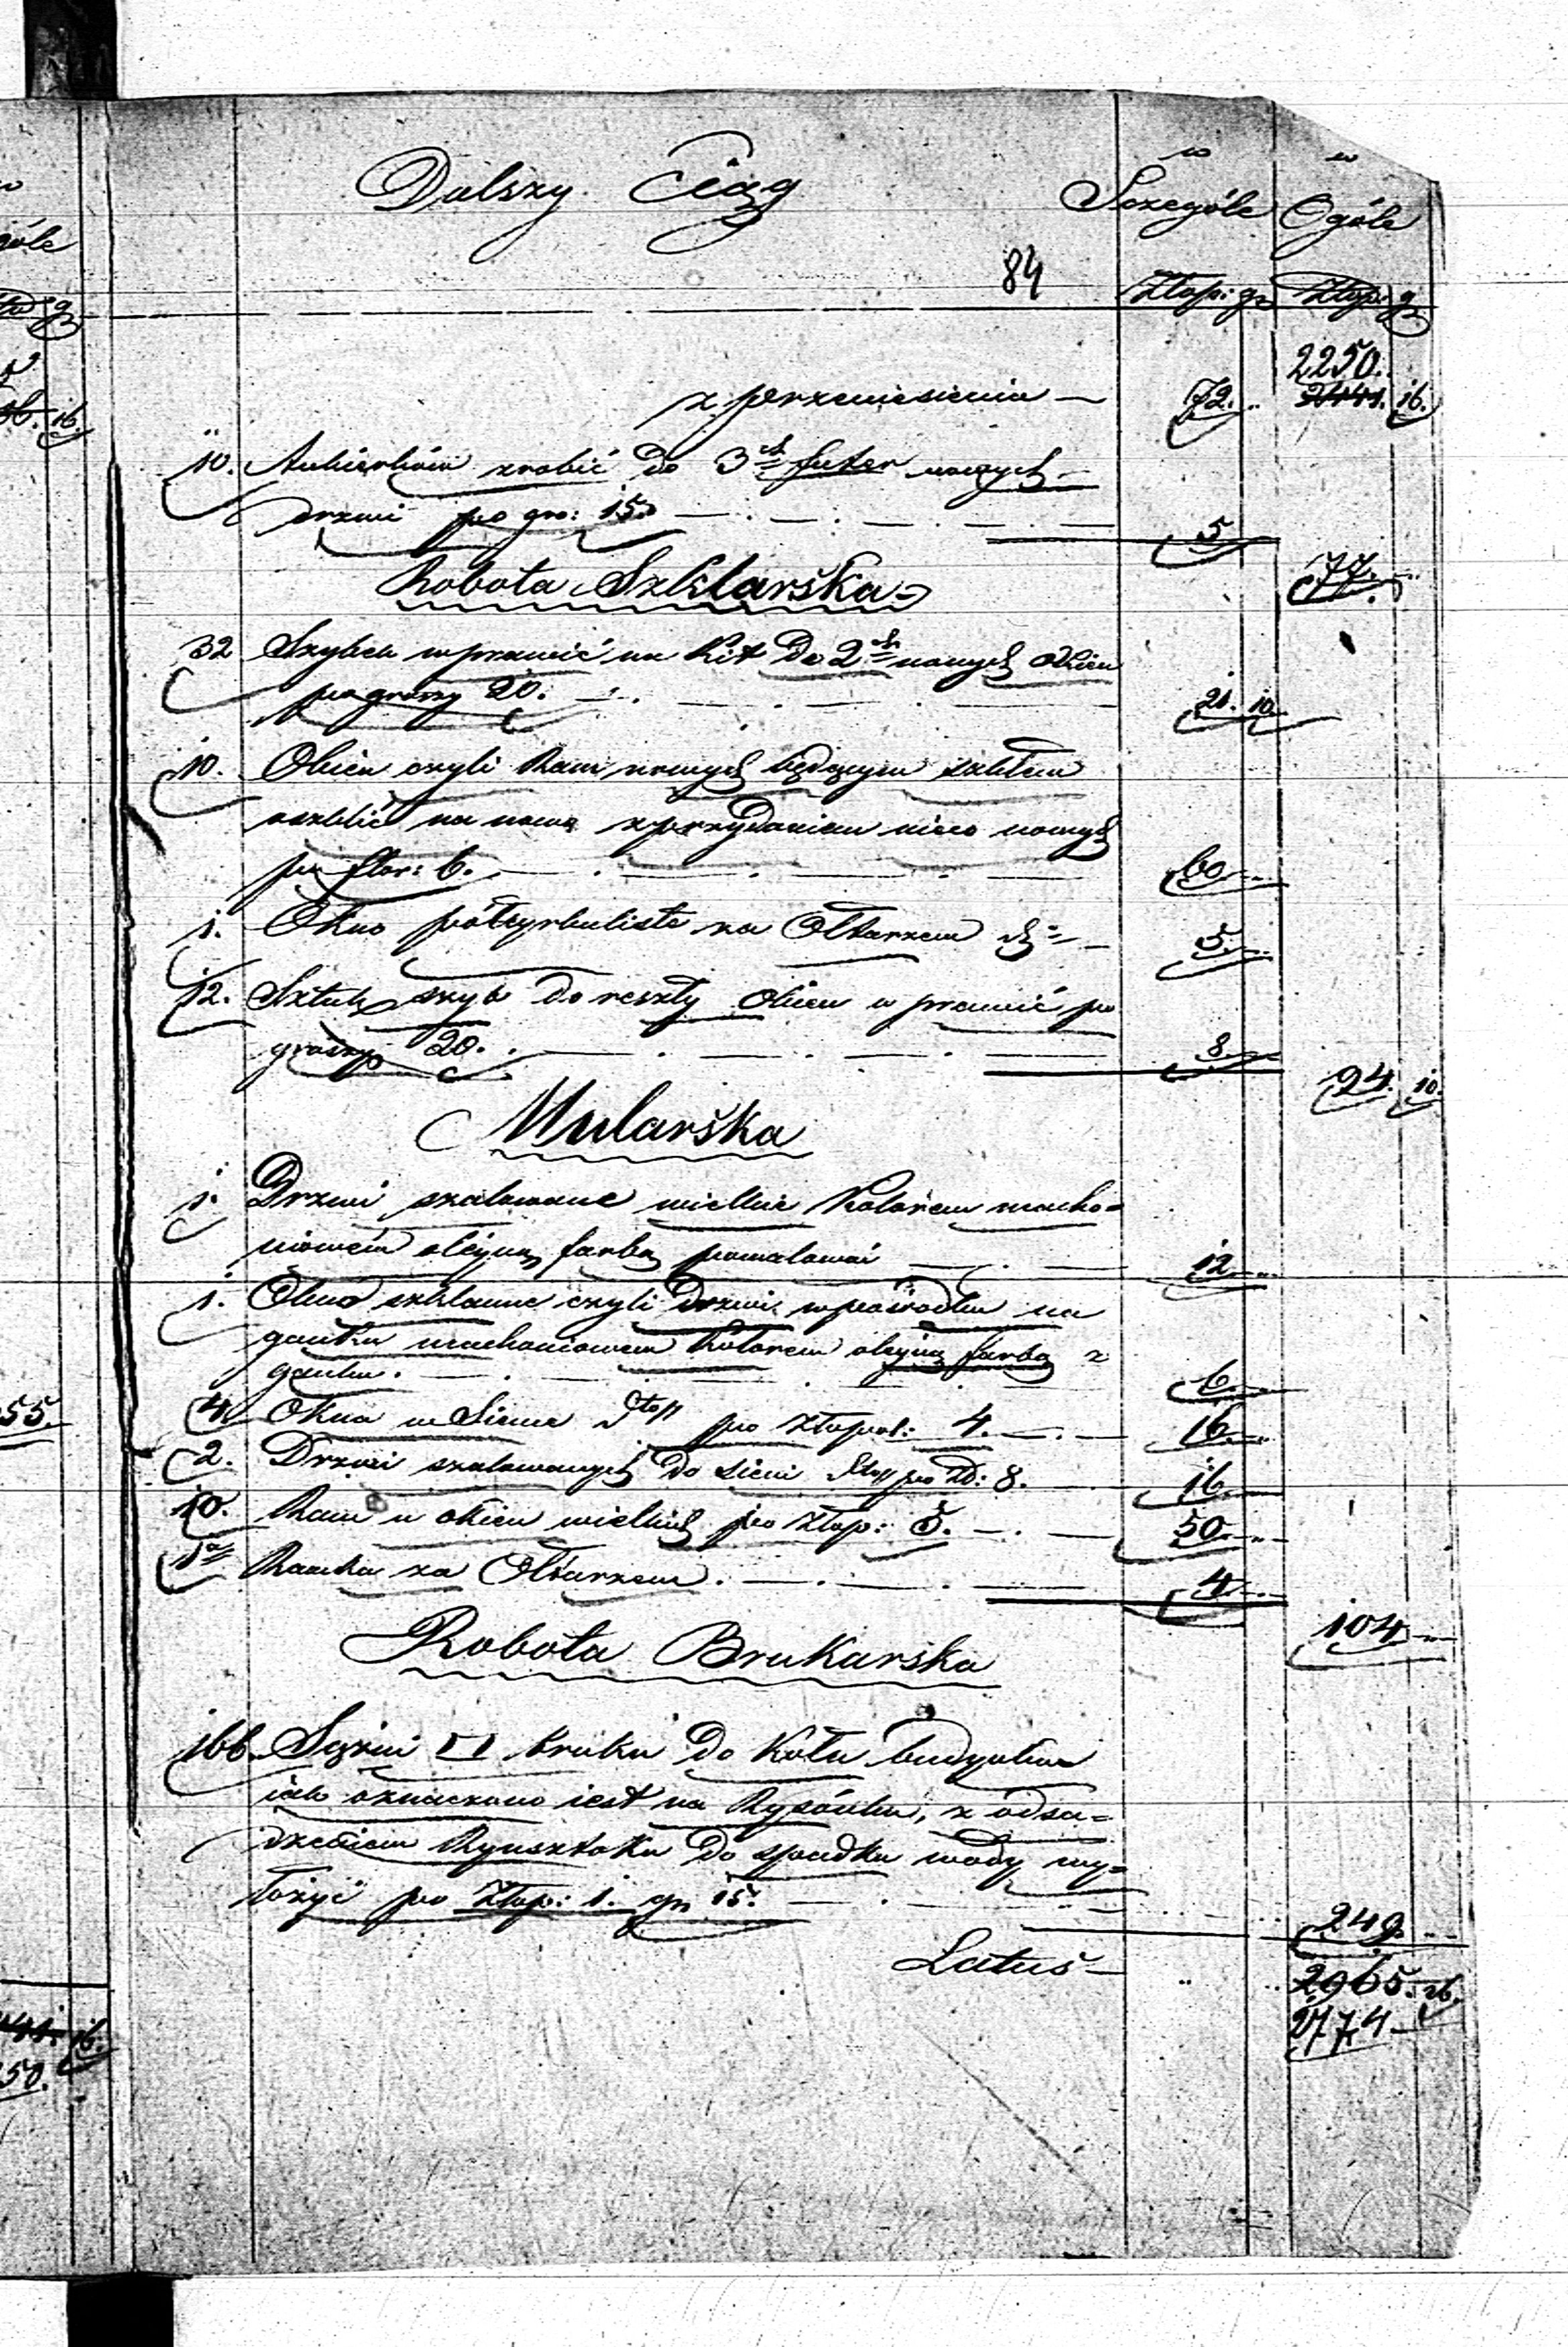 Dalszy Ciąg
w Szczególe
w Ogóle
84
Złop: gr Złop: gr
2250.
z przeniesienia 72. 2441. 16.
10. zrobić do 3ch futer nowych
drzwi po gro: 15. 5
77.
Robota Szklarska
32 Szybek wprawić na Kit do 2ch nowych Okien
po groszy 20. 21. 10
10. Okien czyli Ram nowych będącym szkłem
oszklić na nowo z przydaniem nieco nowych
po flor: 6. 60
1. Okno półcyrkuliste za Ołtarzem 5.
12. Sztuk szyb do reszty Okien wprawić po
groszy 20. 8.
24. 10.
Mularska
1. Drzwi szalowane wielkie Kolorem macho=
niowém oléyną farbą pomalować 12
1. Okno szklanne czyli Drzwi wpośrodku na
ganku machoniowem Kolorem oleyną farbą z
ganku. 6.
4. Okna w Sieni dto po złopol: 4. 16
2. Drzwi szalowanych do sieni dto po zł: 8. 16
10. Ram u okien wielkich po złop: 5. 50
1na Ramka za Ołtarzem. 4
104
Robota Brukarska
166. Sążni □ bruku do Koła budynku
iak oznaczono iest na Rysónku, z odsa=
dzeniem Rynsztoku do spadku wody wy=
łożyć po Złop: 1. gr 15. 249.
Latus 2965. 26.
2774